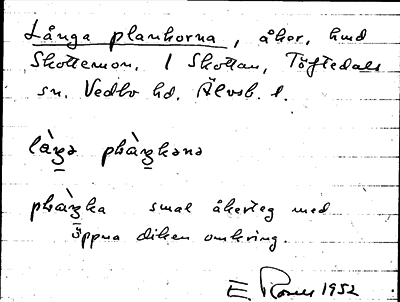 Långa plankorna, åker, hmd
Skottemon. 1 Skottan, Töftedals
sn. Vedbo hd. Älvsb. l.
plàŋka smal åkerteg med
öppna diken omkring.
E 1952